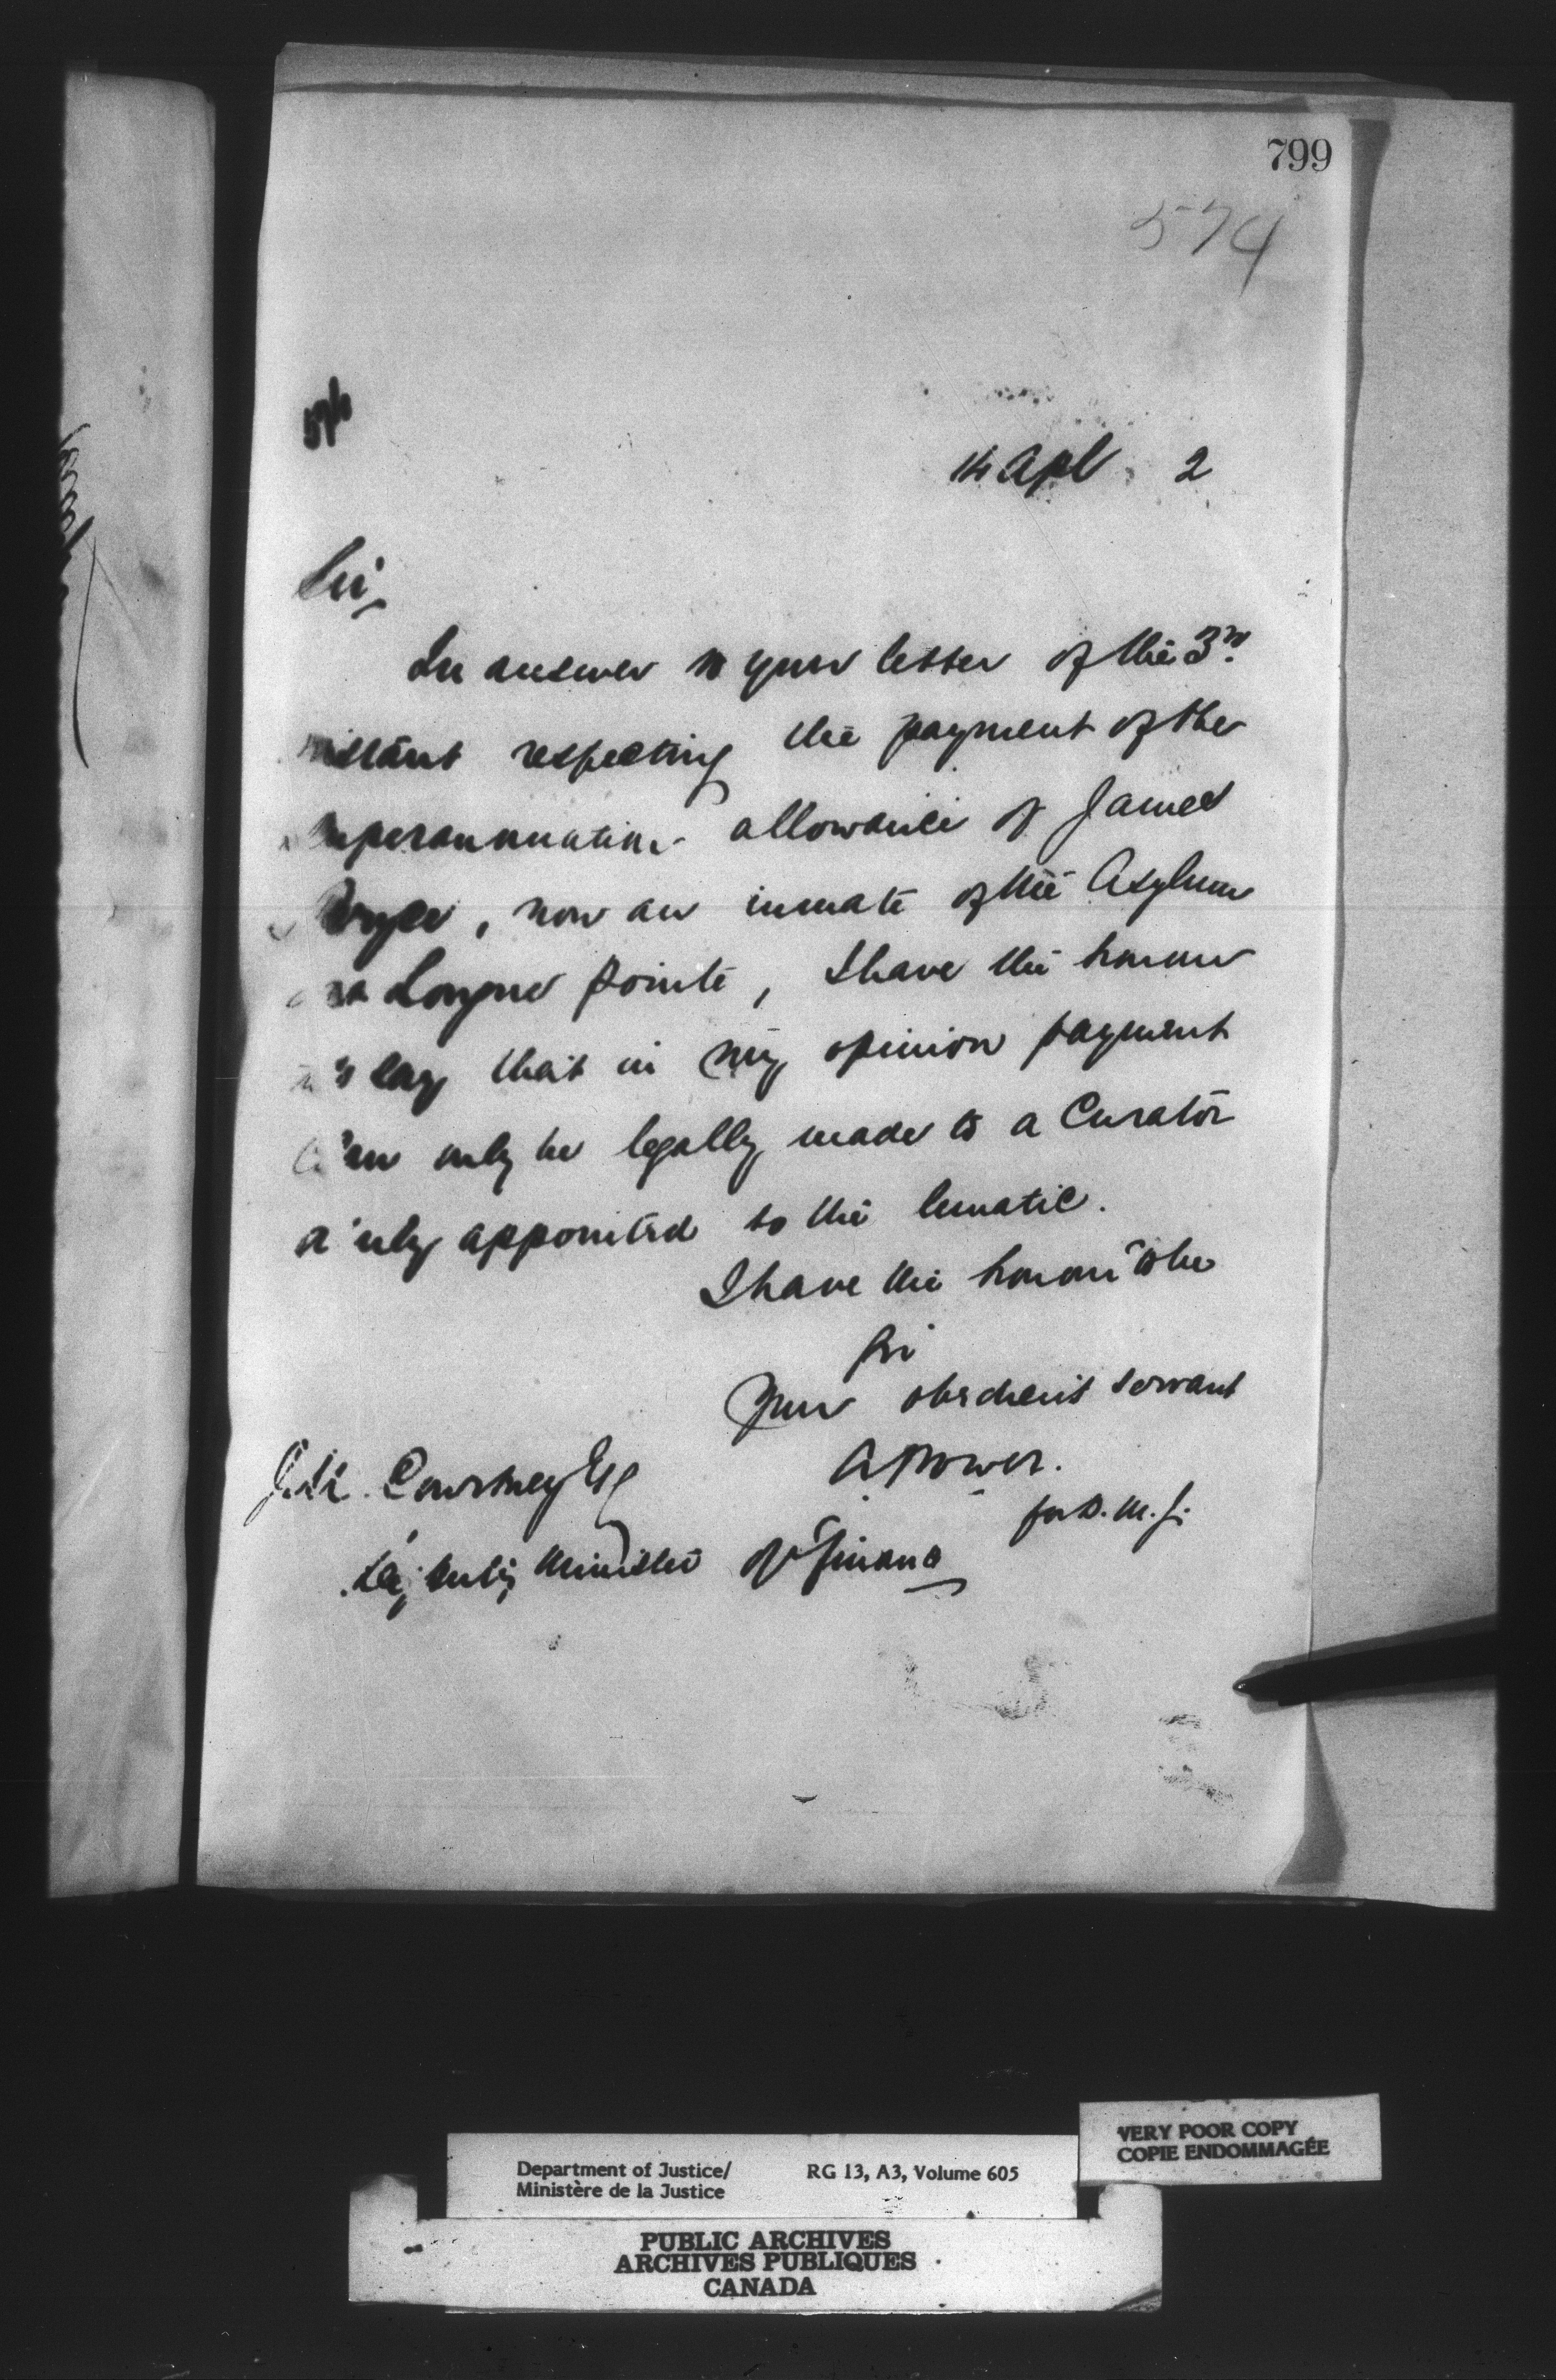 799
574
14 Apl 2
Sir,
In answer to your letter of the 3rd
instant respecting the payment of the
superannuation allowance of James
now an inmate of the Asylum
at Longue Pointe, I have the honour
to say that in my opinion payment
can only be legally made to a Curator
duly appointed to the lunatic.
I have the honour to be
Sir
Your obedient servant
A Power.
for D. M. J.
J. M. Courtney Esq
Deputy Minister of Finance
VERY POOR COPY
COPIE ENDOMMAGÉE
Department of Justice/ RG 13, A3, Volume 605
Ministère de la Justice
PUBLIC ARCHIVES
ARCHIVES PUBLIQUES
CANADA